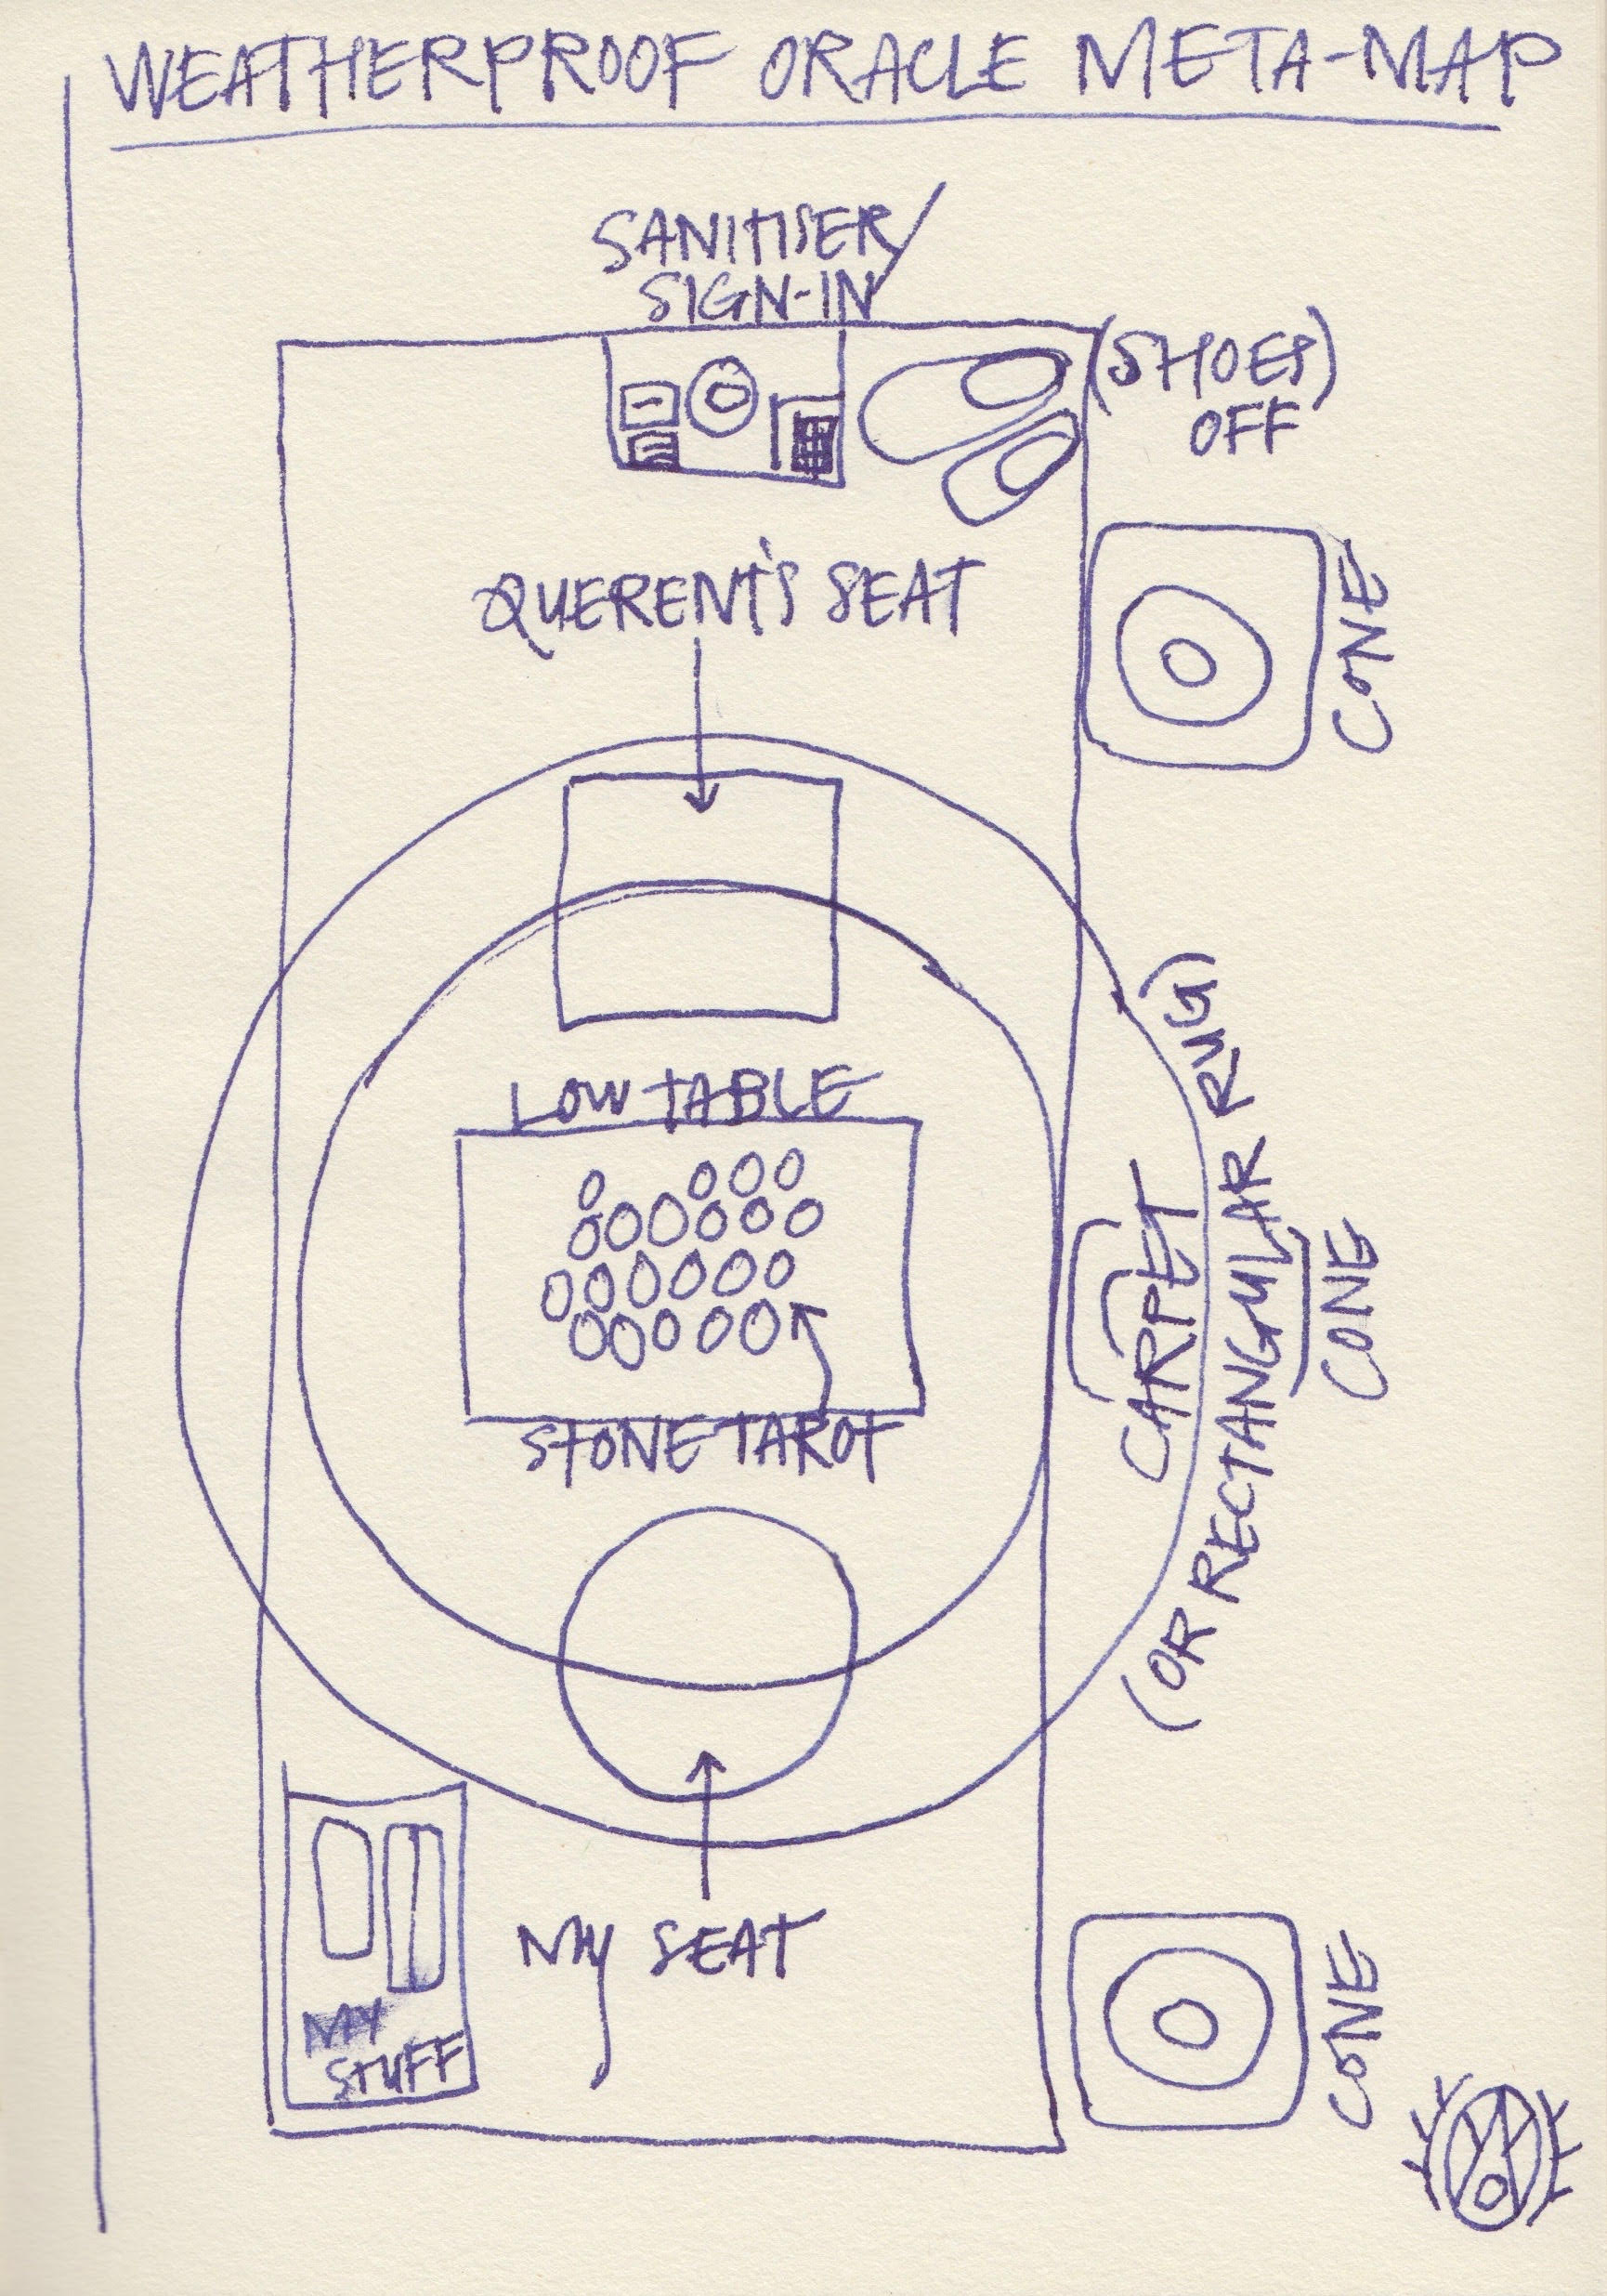 WEATHERPROOF ORACLE META-MAP
SANITISER/
SIGN-IN
(SHOES)
OFF
QUERENT'S SEAT
CONE
LOW TABLE
CARPET
(OR RECTANGULAR RUG)
CONE
STONE TAROT
MY SEAT
MY
STUFF
CONE